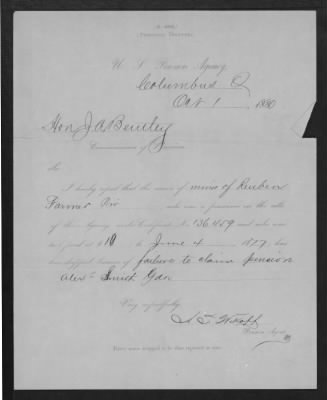 (PENSIONS DROPPED.)
U. S. Pension Agency,
Columbus O
Oct 1, 1880
Hon J A Bentley
Commissioner of Pensions.
Sir:
I hereby report that the name of minor of Reuben
Farmer Priv who was a pensioner on the rolls
of this Agency, under Certificate No. 136,459 and who was
last paid at $10 to June 4, 1877, has
been dropped because of failure to claim pension
Very respectfully,
Pension Agent.
Every name dropped to be thus reported at once.